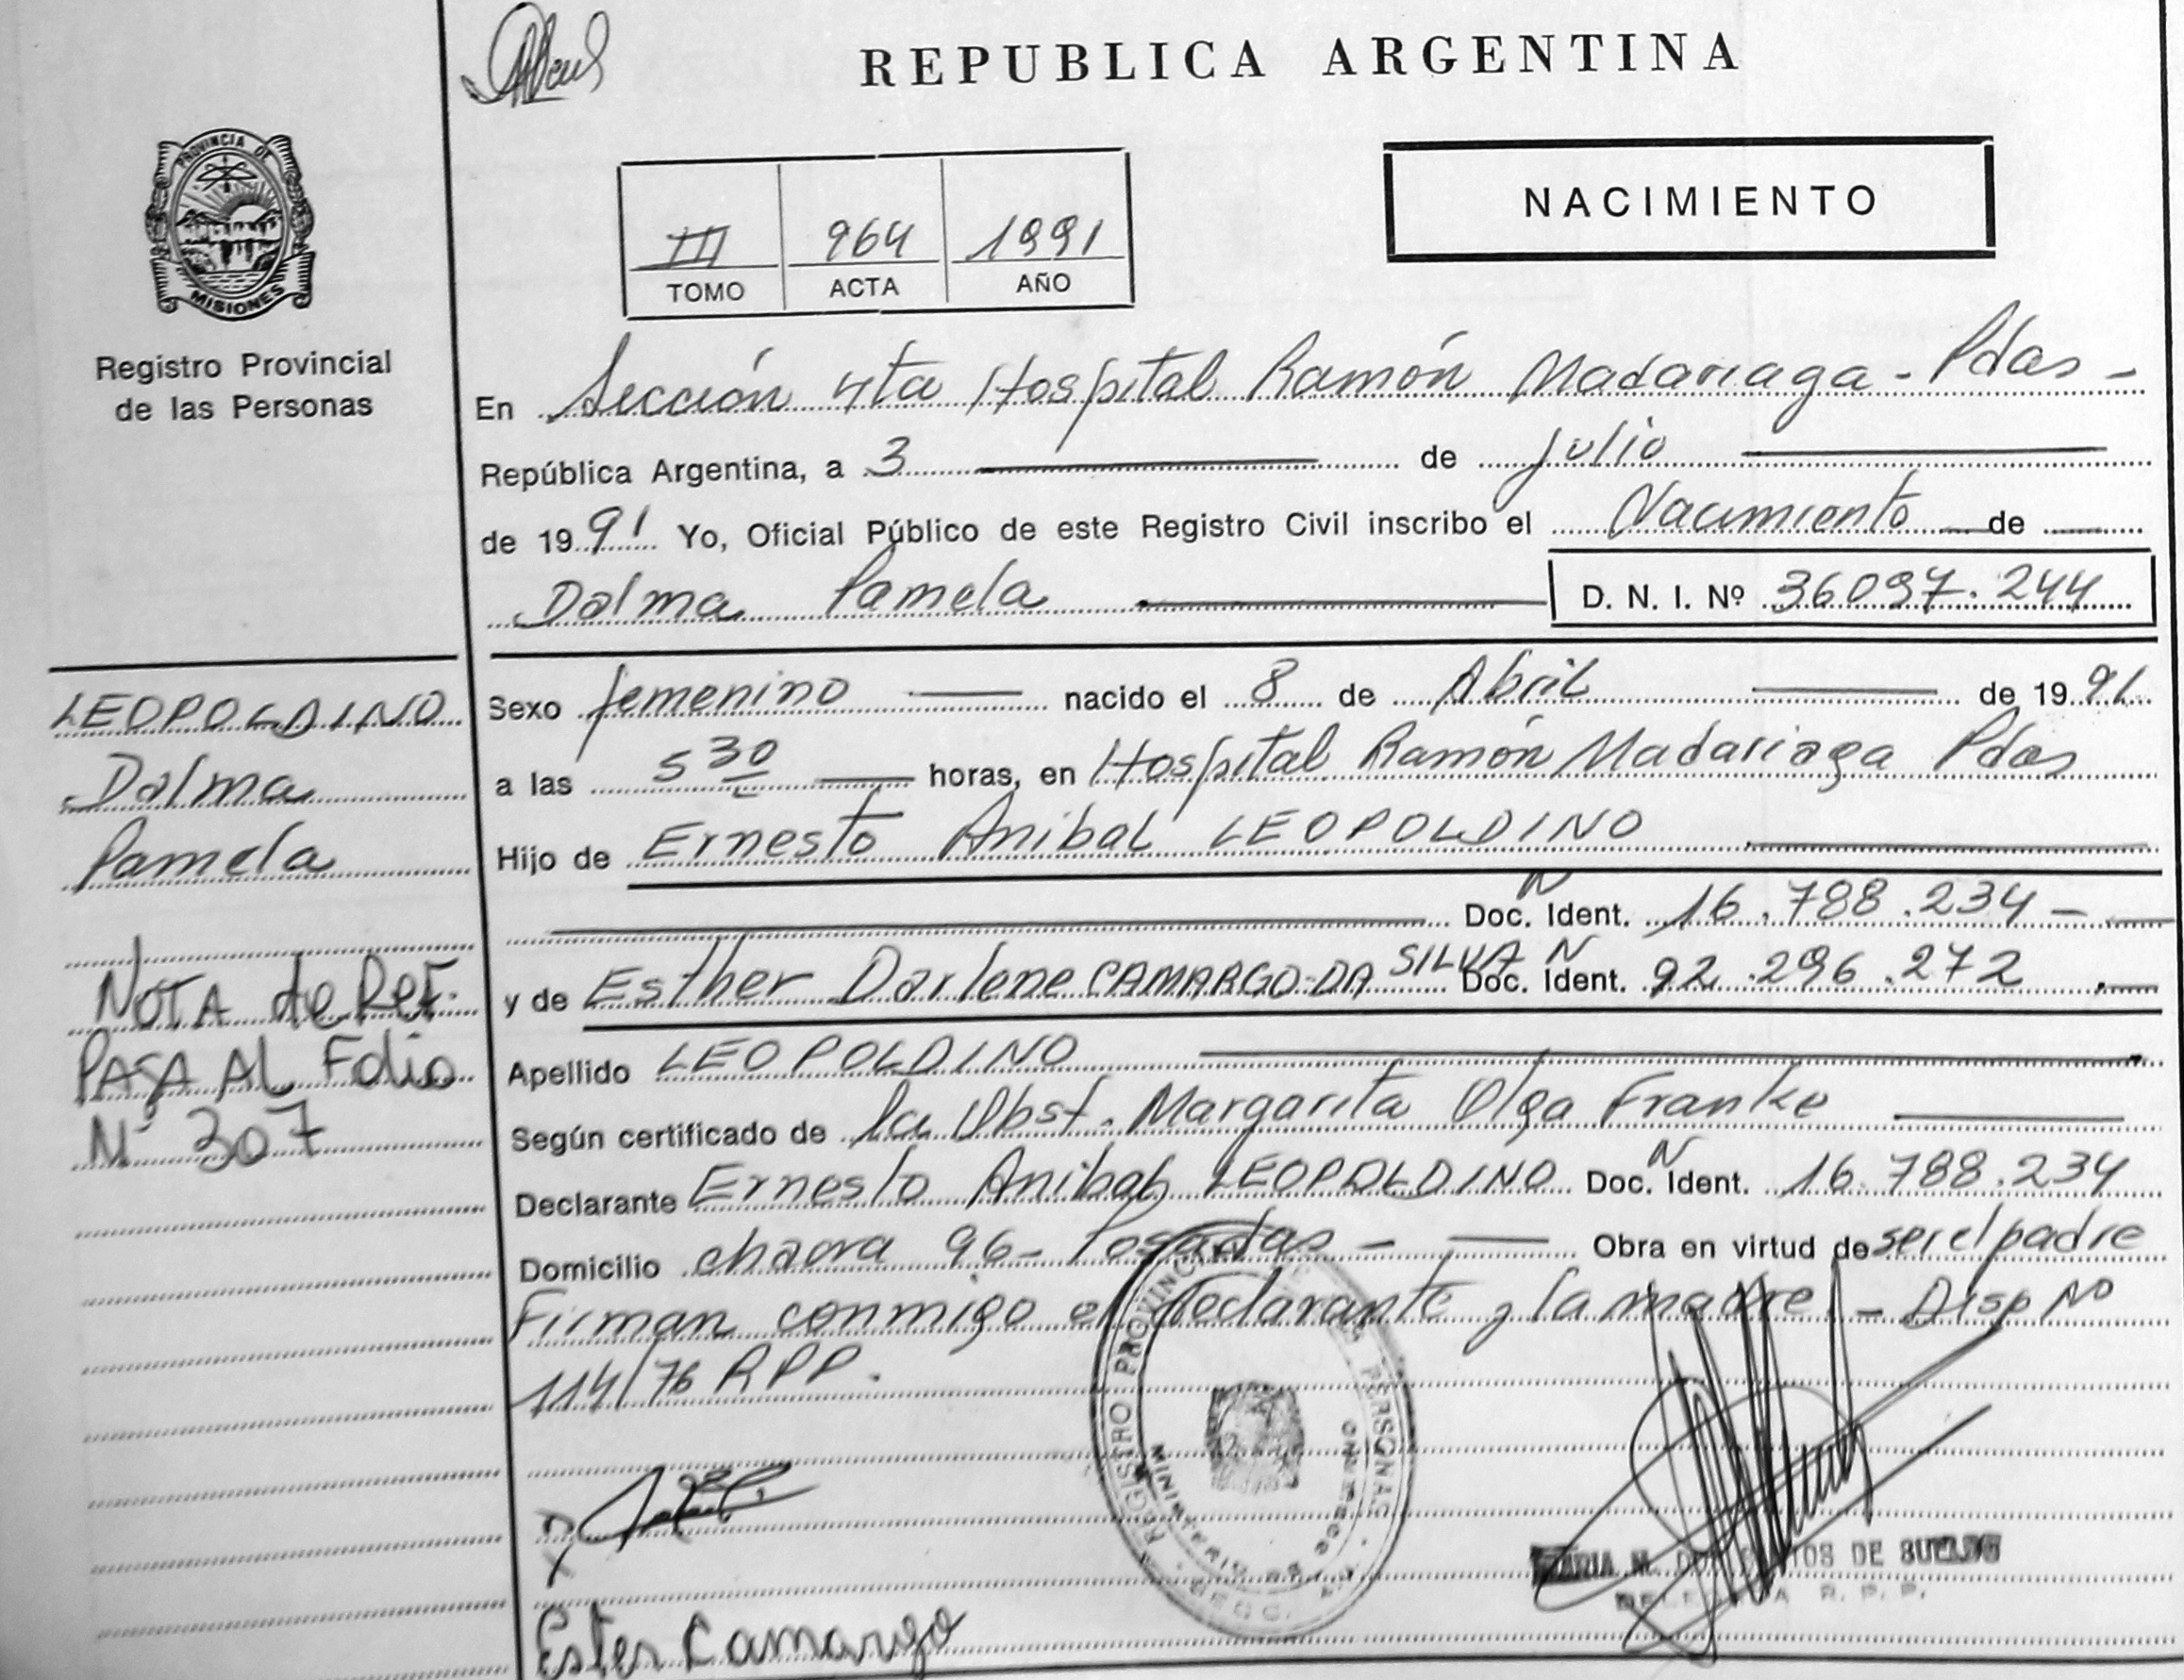 REPUBLICA ARGENTINA
PROVINCIA DE
MISIONES
Registro Provincial
de las Personas
NACIMIENTO
III 964 1991
TOMO ACTA AÑO
En Sección 4ta Hospital Ramón Madariaga - Pdas -
República Argentina, a 3 de Julio
de 1991 Yo, Oficial Público de este Registro Civil inscribo el Nacimiento de
Dalma Pamela D. N. I. Nº 36097.244
LEOPOLDINO
Dalma
Pamela
NOTA de Ref.
PASA AL Folio
Nº 307
Sexo femenino nacido el 8 de Abril de 1991
a las 5 30 horas, en Hospital Ramón Madariaga Pdas
Hijo de Ernesto Anibal LEOPOLDINO
N
Doc. Ident. 16.788.234 -
y de Esther Darlene CAMARGO-DA SILVA N Doc. Ident. 92.296.272
Apellido LEOPOLDINO
Según certificado de la Obst. Margarita Olga Franke
Declarante Ernesto Anibal LEOPOLDINO Doc. N Ident. 16.788.234
Domicilio chacra 96 - Posadas - Obra en virtud de ser el padre
Firman conmigo el declarante y la madre. - Disp Nº
114/76 RPP.
REGISTRO PROVINCIAL PERSONAS
MINISTERIO
MARIA M. DOS SANTOS DE
R. P. P.
Ester Camargo